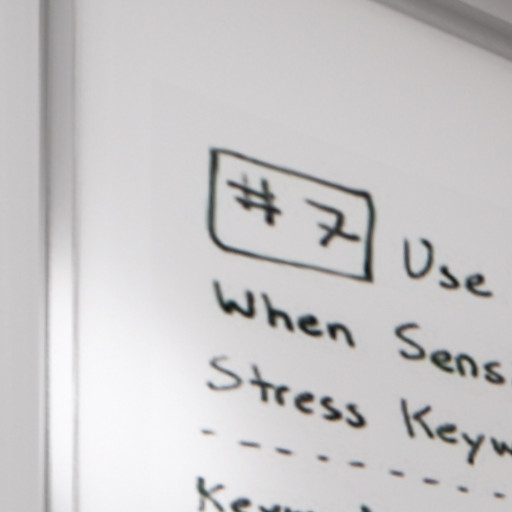 #7 Use
When Sens
Stress Keyw